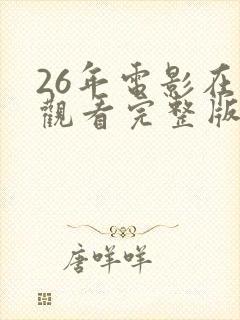 26年電影在
觀看完整版
唐咩咩